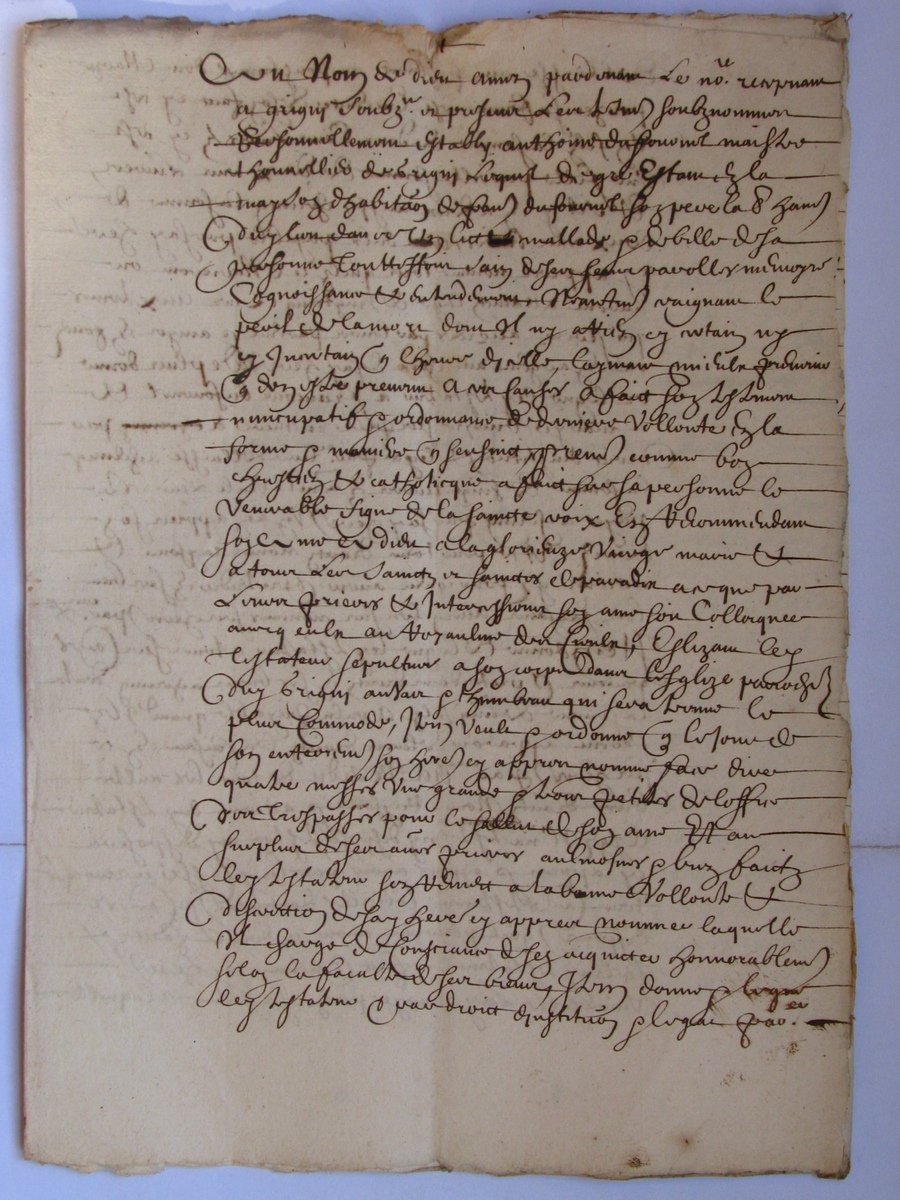 Au Nom de dieu amen pardevant Le no.re recepvant
a grigni soubz.né et presents Les tesms soubznommes
personnellement estably anthoine dufournel maistre
thonnellier de Grigni Lequel de gré Estant en la
mayson d'habita͠on de dufournel son pere la
dug lion dans un lict mallade & debille de sa
personne touttesfois sain de ses sens parolles memoyre
Cognoissance & entendement Neantms craignant le
peril de la mort dont Il ny a rien cy certain ny
cy Incertain q Lheure d'icelle,
q den estre prevenu A ces causes A faict son testement
nuncupatif & ordonnance de derniere Vollonte En la
forme & maniere q sensuict, premt comme bon
chrestien & catholicque a faict sur sa personne le
Venerable signe de la saincte croix En Recommendant
son ame a dieu a la glorieuze Vierge marie &
a tous Les Saincts et sainctes de paradis a ce que par
Leurs prieres & Intercessions son ame soit Colloquee
avecq eulx au Royaulme des Cieulx, Eslizant led
testateur sepulture a son corps dans lesglize parrochielle
dug Grigni au vas & thumbeau qui sera trouve le
plus Commode, Item Veult & ordonne q le jour de
son enterremt son here cy appres nomme face dire
quatre messes Une grande & trois petites de loffice
des trespasses pour le sallut de son ame Et au
surplus de ses aultres prieres aulmosnes & bienfaictz
led testateur sen Remect a la bonne Vollonte &
discretion de son here cy appres nommee laquelle
Il charge de Consciance de sen acquicter honnorablemt
selon la faculte de ses biens, Item donne & legue
led testateur & par droict d'institu͠on & legat par.er